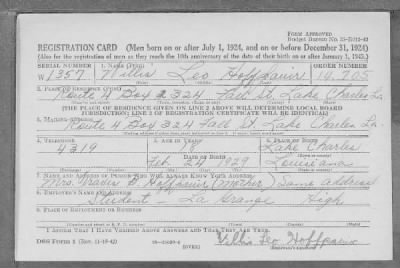 FORM APPROVED
Budget Bureau No. 33-R112-42
REGISTRATION CARD (Men born on or after July 1, 1924, and on or before December 31, 1924)
(Also for the registration of men as they reach the 18th anniversary of the date of their birth on or after January 1, 1943.)
SERIAL NUMBER 1. NAME (Print) ORDER NUMBER
W 1357 Willis Leo Hoffpauir 14,705
2. PLACE OF RESIDENCE (Print)
Route 4 Box 324 St. Lake Charles La.
[THE PLACE OF RESIDENCE GIVEN ON LINE 2 ABOVE WILL DETERMINE LOCAL BOARD
JURISDICTION; LINE 2 OF REGISTRATION CERTIFICATE WILL BE IDENTICAL]
3. MAILING ADDRESS
Route 4 Box 324 St Lake Charles La.
4. TELEPHONE 5. AGE IN YEARS 6. PLACE OF BIRTH
4319 18 Lake Charles
DATE OF BIRTH
Feb. 24 1929 Louisiana
7. NAME AND ADDRESS OF PERSON WHO WILL ALWAYS KNOW YOUR ADDRESS
Mrs. Hoffpauir (mother) Same address
8. EMPLOYER'S NAME AND ADDRESS
Student - La Grange High
9. PLACE OF EMPLOYMENT OR BUSINESS
I AFFIRM THAT I HAVE VERIFIED ABOVE ANSWERS AND THAT THEY ARE TRUE.
DSS Form 1 (Rev. 11-16-42) (OVER) Willis Leo Hoffpauir